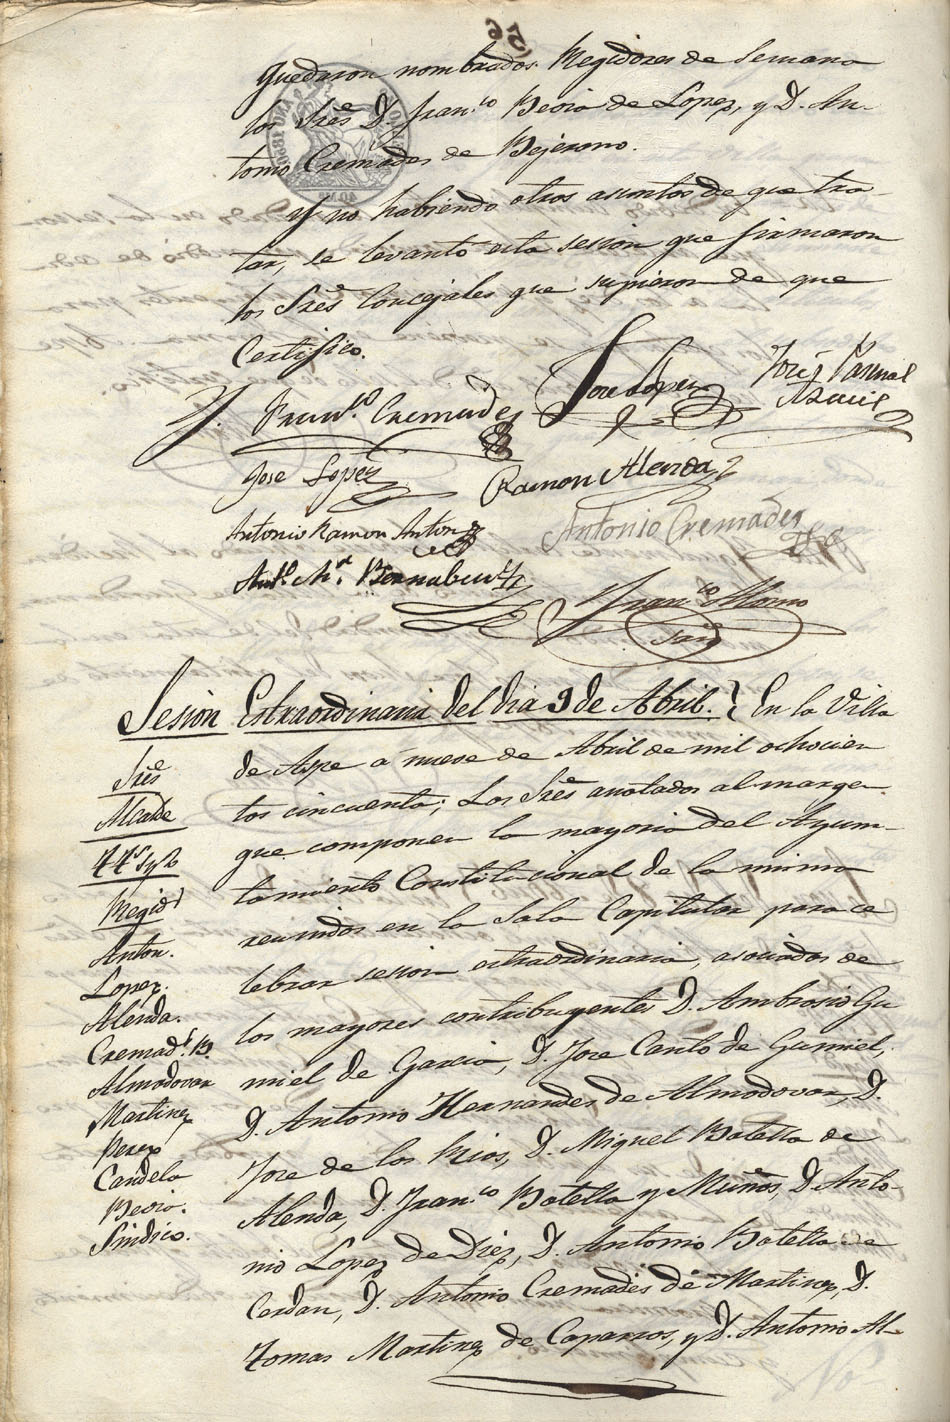 56
Quedaron nombrados Regidores de Semana
los Sres. D. Fran.co Beviá de Lopez, y D. An-
tonio Cremades de Bejerano.
Y no habiendo otros asuntos de que tra-
tar, se levantó esta sesion que firmaron
los Sres. Concejales que supieron de que
Certifico.
Fran.co Cremades
Jose Lopez
José Pascual
Jose Lopez
Ramon Alenda
Antonio Ramon Anton
Antonio Cremades
Ant.o M.a Bernabeu
Fran.co Alonso
Srio
Sesion Estraordinaria del dia 9 de Abril. En la Villa
de Aspe á nueve de Abril de mil ochocien
tos cincuenta; Los Sres. anotados al margen
que componen la mayoria del Ayun-
tamiento Constitucional de la misma
reunidos en la Sala Capitular para ce
lebrar sesion estraordinaria, asociados de
los mayores contribuyentes D. Ambrosio Gu
miel de Garcia, D. Jose Canto de Gumiel,
D. Antonio Hernandes de Almodovar, D.
Jose de los Rios, D. Miguel Botella de
Alenda, D. Fran.co Botella y Muños, D. Anto-
nio Lopez de Diez, D. Antonio Botella de
Cerdan, D. Antonio Cremades de Martinez, D.
Tomas Martinez de Caparros, y D. Antonio Al-
Sres
Alcalde
Regid.s
Anton.
Lopez.
Alenda.
Cremad.s B.
Almodovar
Martinez
Perez
Candela
Bevia.
Sindico.